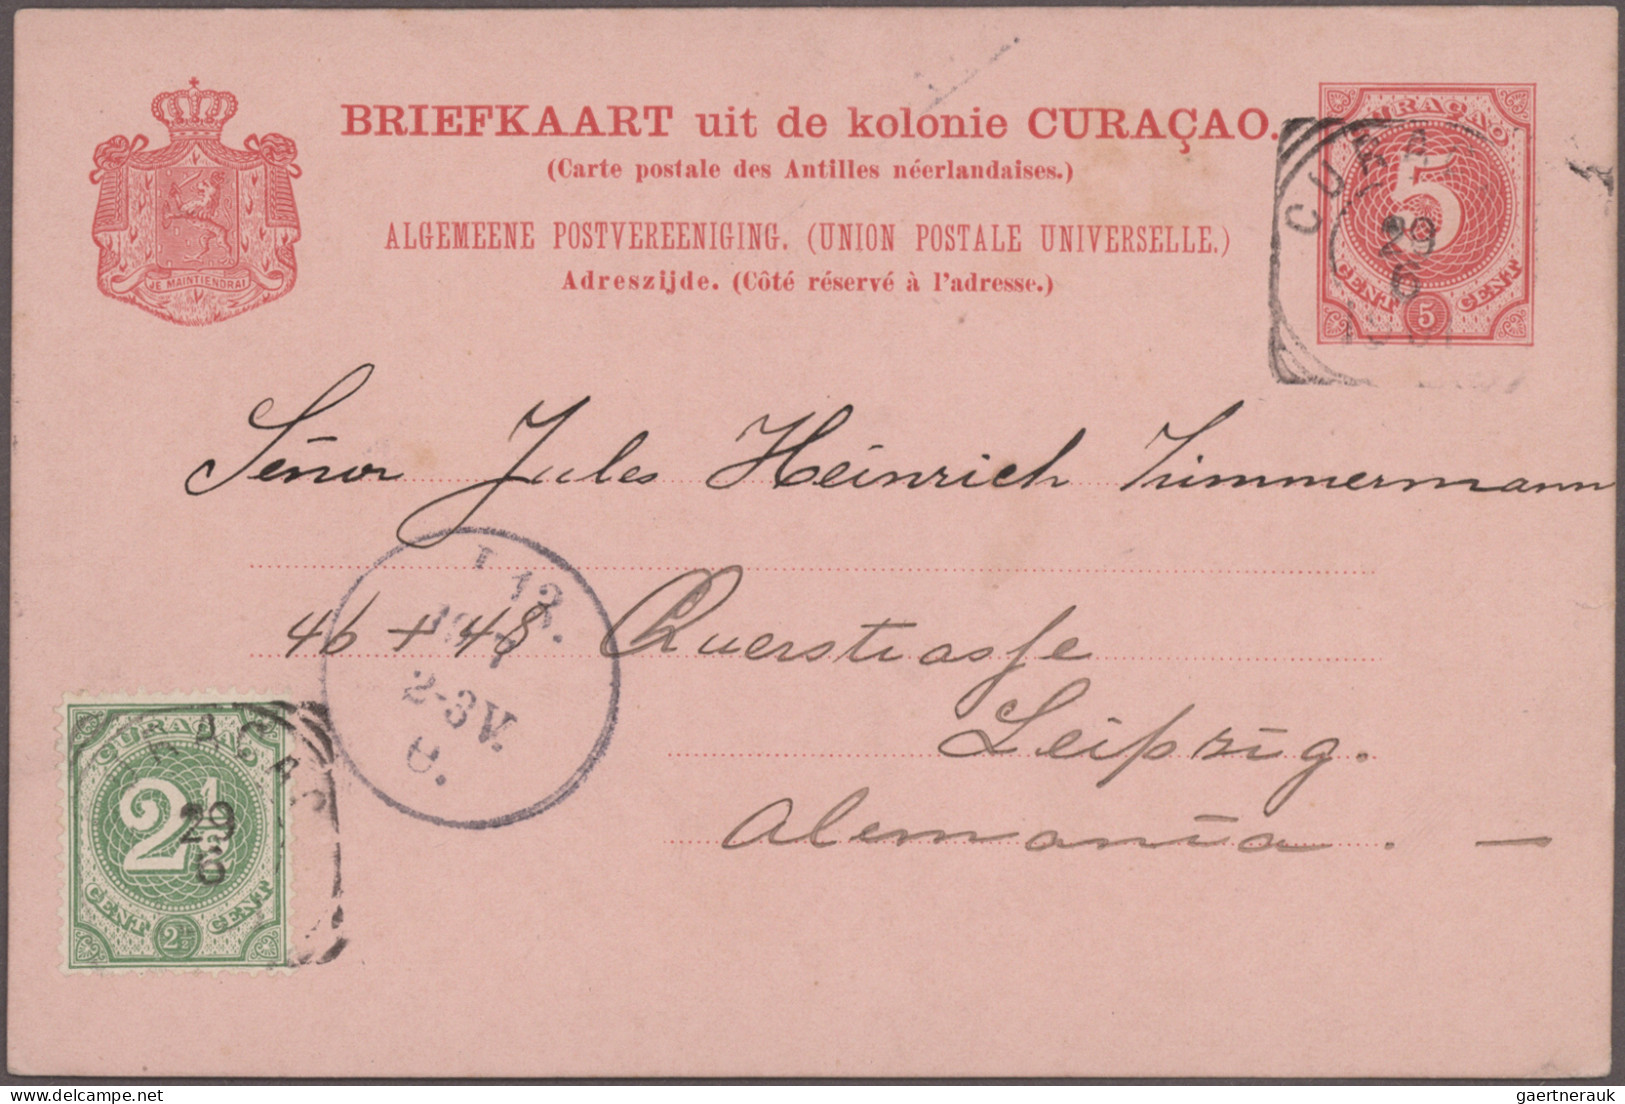 BRIEFKAART uit de kolonie CURAÇAO.
(Carte postale des Antilles néerlandaises.)
ALGEMEENE POSTVEREENIGING. (UNION POSTALE UNIVERSELLE.)
Adreszijde. (Côté réservé à l'adresse.)
JE MAINTIENDRAI
CURAÇAO
5
CENT 5 CENT
CURA
29
6
Señor Jules Heinrich Zimmermann
46 + 48 Querstrasse
Leipzig.
Alemania. —
L 13.
2-3V.
e.
CURAÇAO
2½
CENT 2½ CENT
RACA
29
6
gaertnerauk